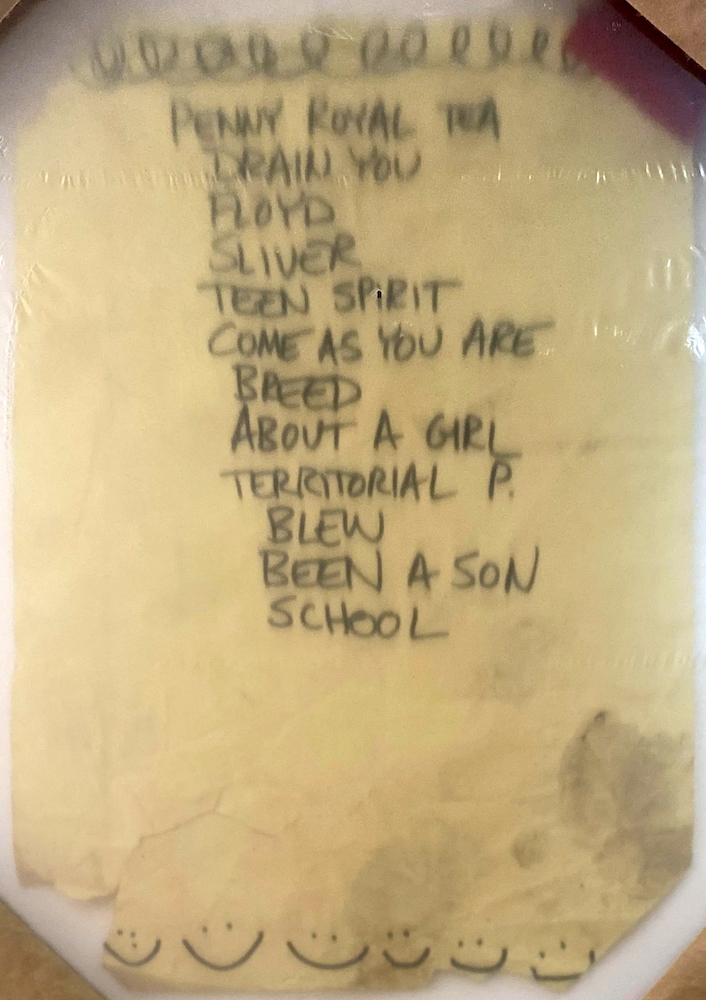 PENNY ROYAL TEA
DRAIN YOU
FLOYD
SLIVER
TEEN SPIRIT
COME AS YOU ARE
BREED
ABOUT A GIRL
TERRITORIAL P.
BLEW
BEEN A SON
SCHOOL